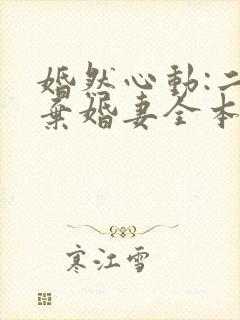 婚然心動:二
棄婚妻全本
寒江雪